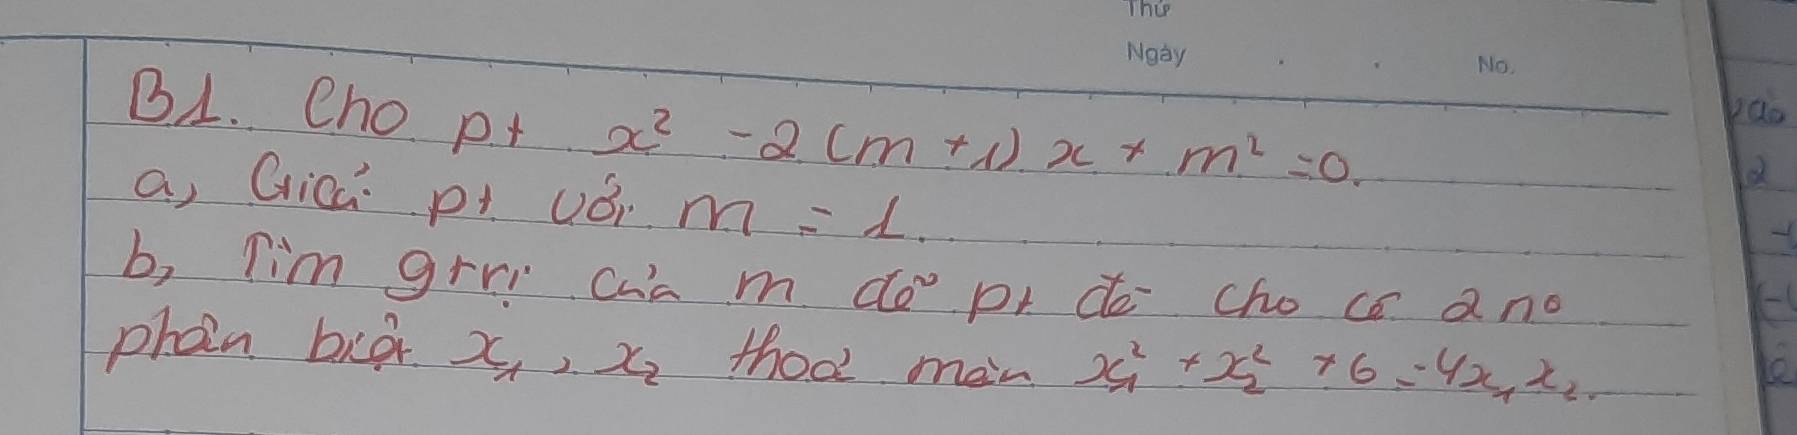 Thứ
Ngày . . No.
B1. Cho pt x² - 2(m+1)x + m² = 0.
a, Giải pt với m = 1.
b, Tìm gtrị của m để pt đã cho có 2 no
phân biệt x₁, x₂ thoả mãn x₁² + x₂² + 6 = 4x₁x₂.